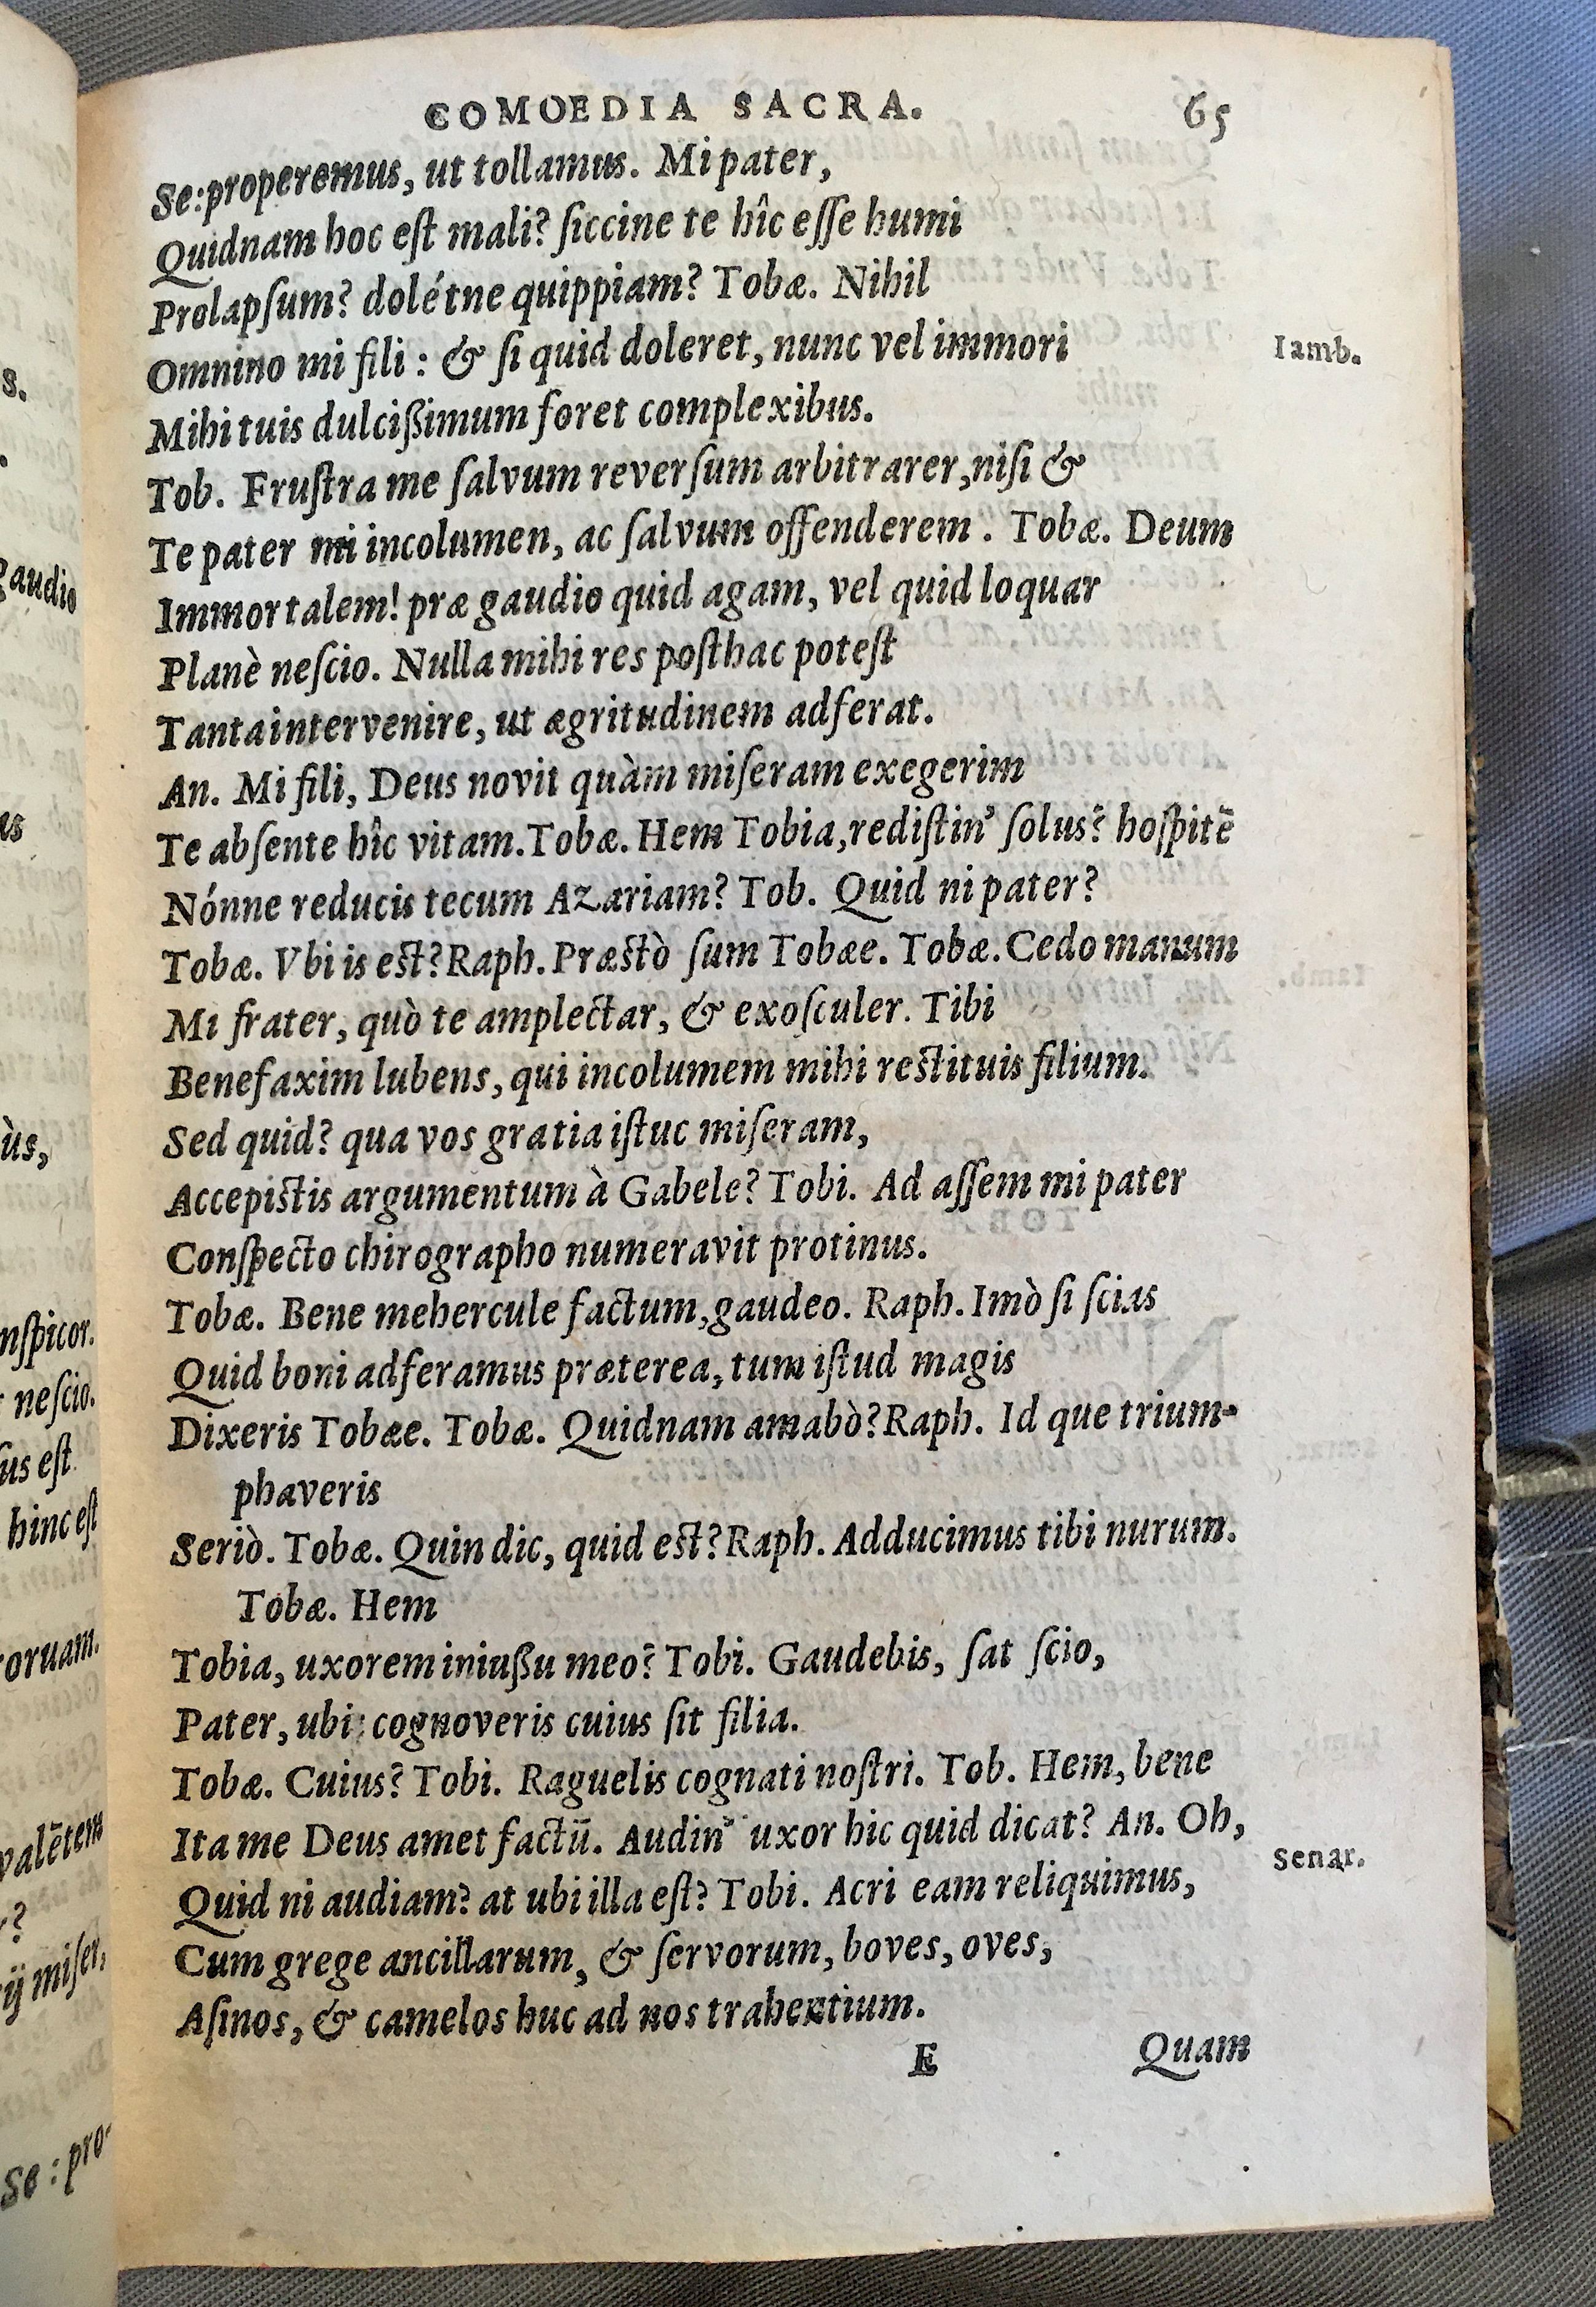 COMOEDIA SACRA. 65
Se: properemus, ut tollamus. Mi pater,
Quidnam hoc eſt mali? ſiccine te hîc eſſe humi
Prolapſum? dolét ne quippiam? Tobæ. Nihil
Omnino mi fili: & ſi quid doleret, nunc vel immori
Iamb.
Mihi tuis dulcißimum foret complexibus.
Tob. Fruſtra me ſalvum reverſum arbitrarer, niſi &
Te pater mi incolumen, ac ſalvum offenderem. Tobæ. Deum
Immortalem! præ gaudio quid agam, vel quid loquar
Planè neſcio. Nulla mihi res poſthac poteſt
Tanta intervenire, ut ægritudinem adferat.
An. Mi fili, Deus novit quàm miſeram exegerim
Te abſente hîc vitam. Tobæ. Hem Tobia, rediſtin' ſolus? hoſpitē
Nónne reducis tecum Azariam? Tob. Quid ni pater?
Tobæ. Vbi is eſt? Raph. Præſtò ſum Tobæe. Tobæ. Cedo manum
Mi frater, quò te amplectar, & exoſculer. Tibi
Benefaxim lubens, qui incolumem mihi reſtituis filium.
Sed quid? qua vos gratia iſtuc miſeram,
Accepiſtis argumentum à Gabele? Tobi. Ad aſſem mi pater
Conſpecto chirographo numeravit protinus.
Tobæ. Bene mehercule factum, gaudeo. Raph. Imò ſi ſcias
Quid boni adferamus præterea, tum iſtud magis
Dixeris Tobæe. Tobæ. Quidnam amabò? Raph. Id que trium-
phaveris
Seriò. Tobæ. Quin dic, quid eſt? Raph. Adducimus tibi nurum.
Tobæ. Hem
Tobia, uxorem iniußu meo? Tobi. Gaudebis, ſat ſcio,
Pater, ubi cognoveris cuius ſit filia.
Tobæ. Cuius? Tobi. Raguelis cognati noſtri. Tob. Hem, bene
Ita me Deus amet factū. Audin' uxor hic quid dicat? An. Oh,
Senar.
Quid ni audiam? at ubi illa eſt? Tobi. Acri eam reliquimus,
Cum grege ancillarum, & ſervorum, boves, oves,
Aſinos, & camelos huc ad nos trahentium.
E Quam
s.
gaudio
as
ùs,
nſpicor.
neſcio.
us eſt
hinc eſt
oruam.
valētem
?
ij miſer,
Se: pro-